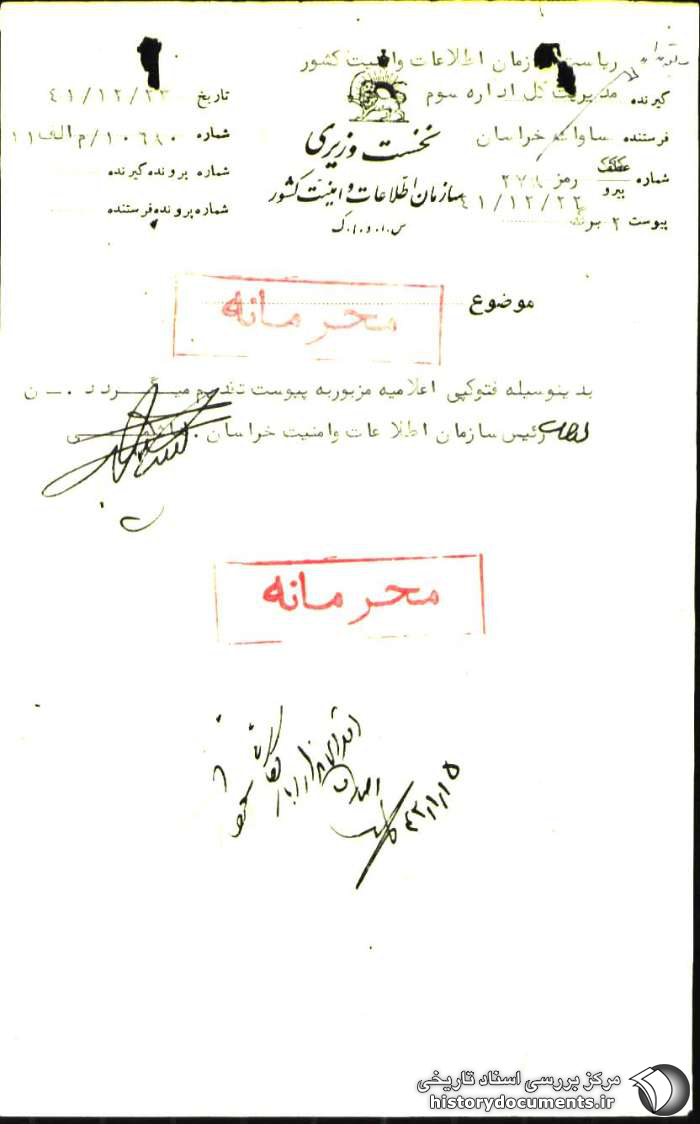 ریاست سازمان اطلاعات وامنیت کشور
گیرنده مدیریت کل اداره سوم
فرستنده ساواک خراسان
شماره عطف پیرو رمز ۲۷۸
۴۱/۱۲/۲۲
پیوست ۲ برگ
نخست وزیری
سازمان اطلاعات و امنیت کشور
س.ا.و.ا.ک
تاریخ ۴۱/۱۲/۲۳
شماره ۱۰۶۸۰/م الف۱۱
شماره پرونده گیرنده
شماره پرونده فرستنده
موضوع
محرمانه
بدینوسیله فتوکپی اعلامیه مزبور به پیوست تقدیم میگردد . ن
رئیس سازمان اطلاعات وامنیت خراسان .
محرمانه
۴۲/۱/۱۵
مرکز بررسی اسناد تاریخی
historydocuments.ir